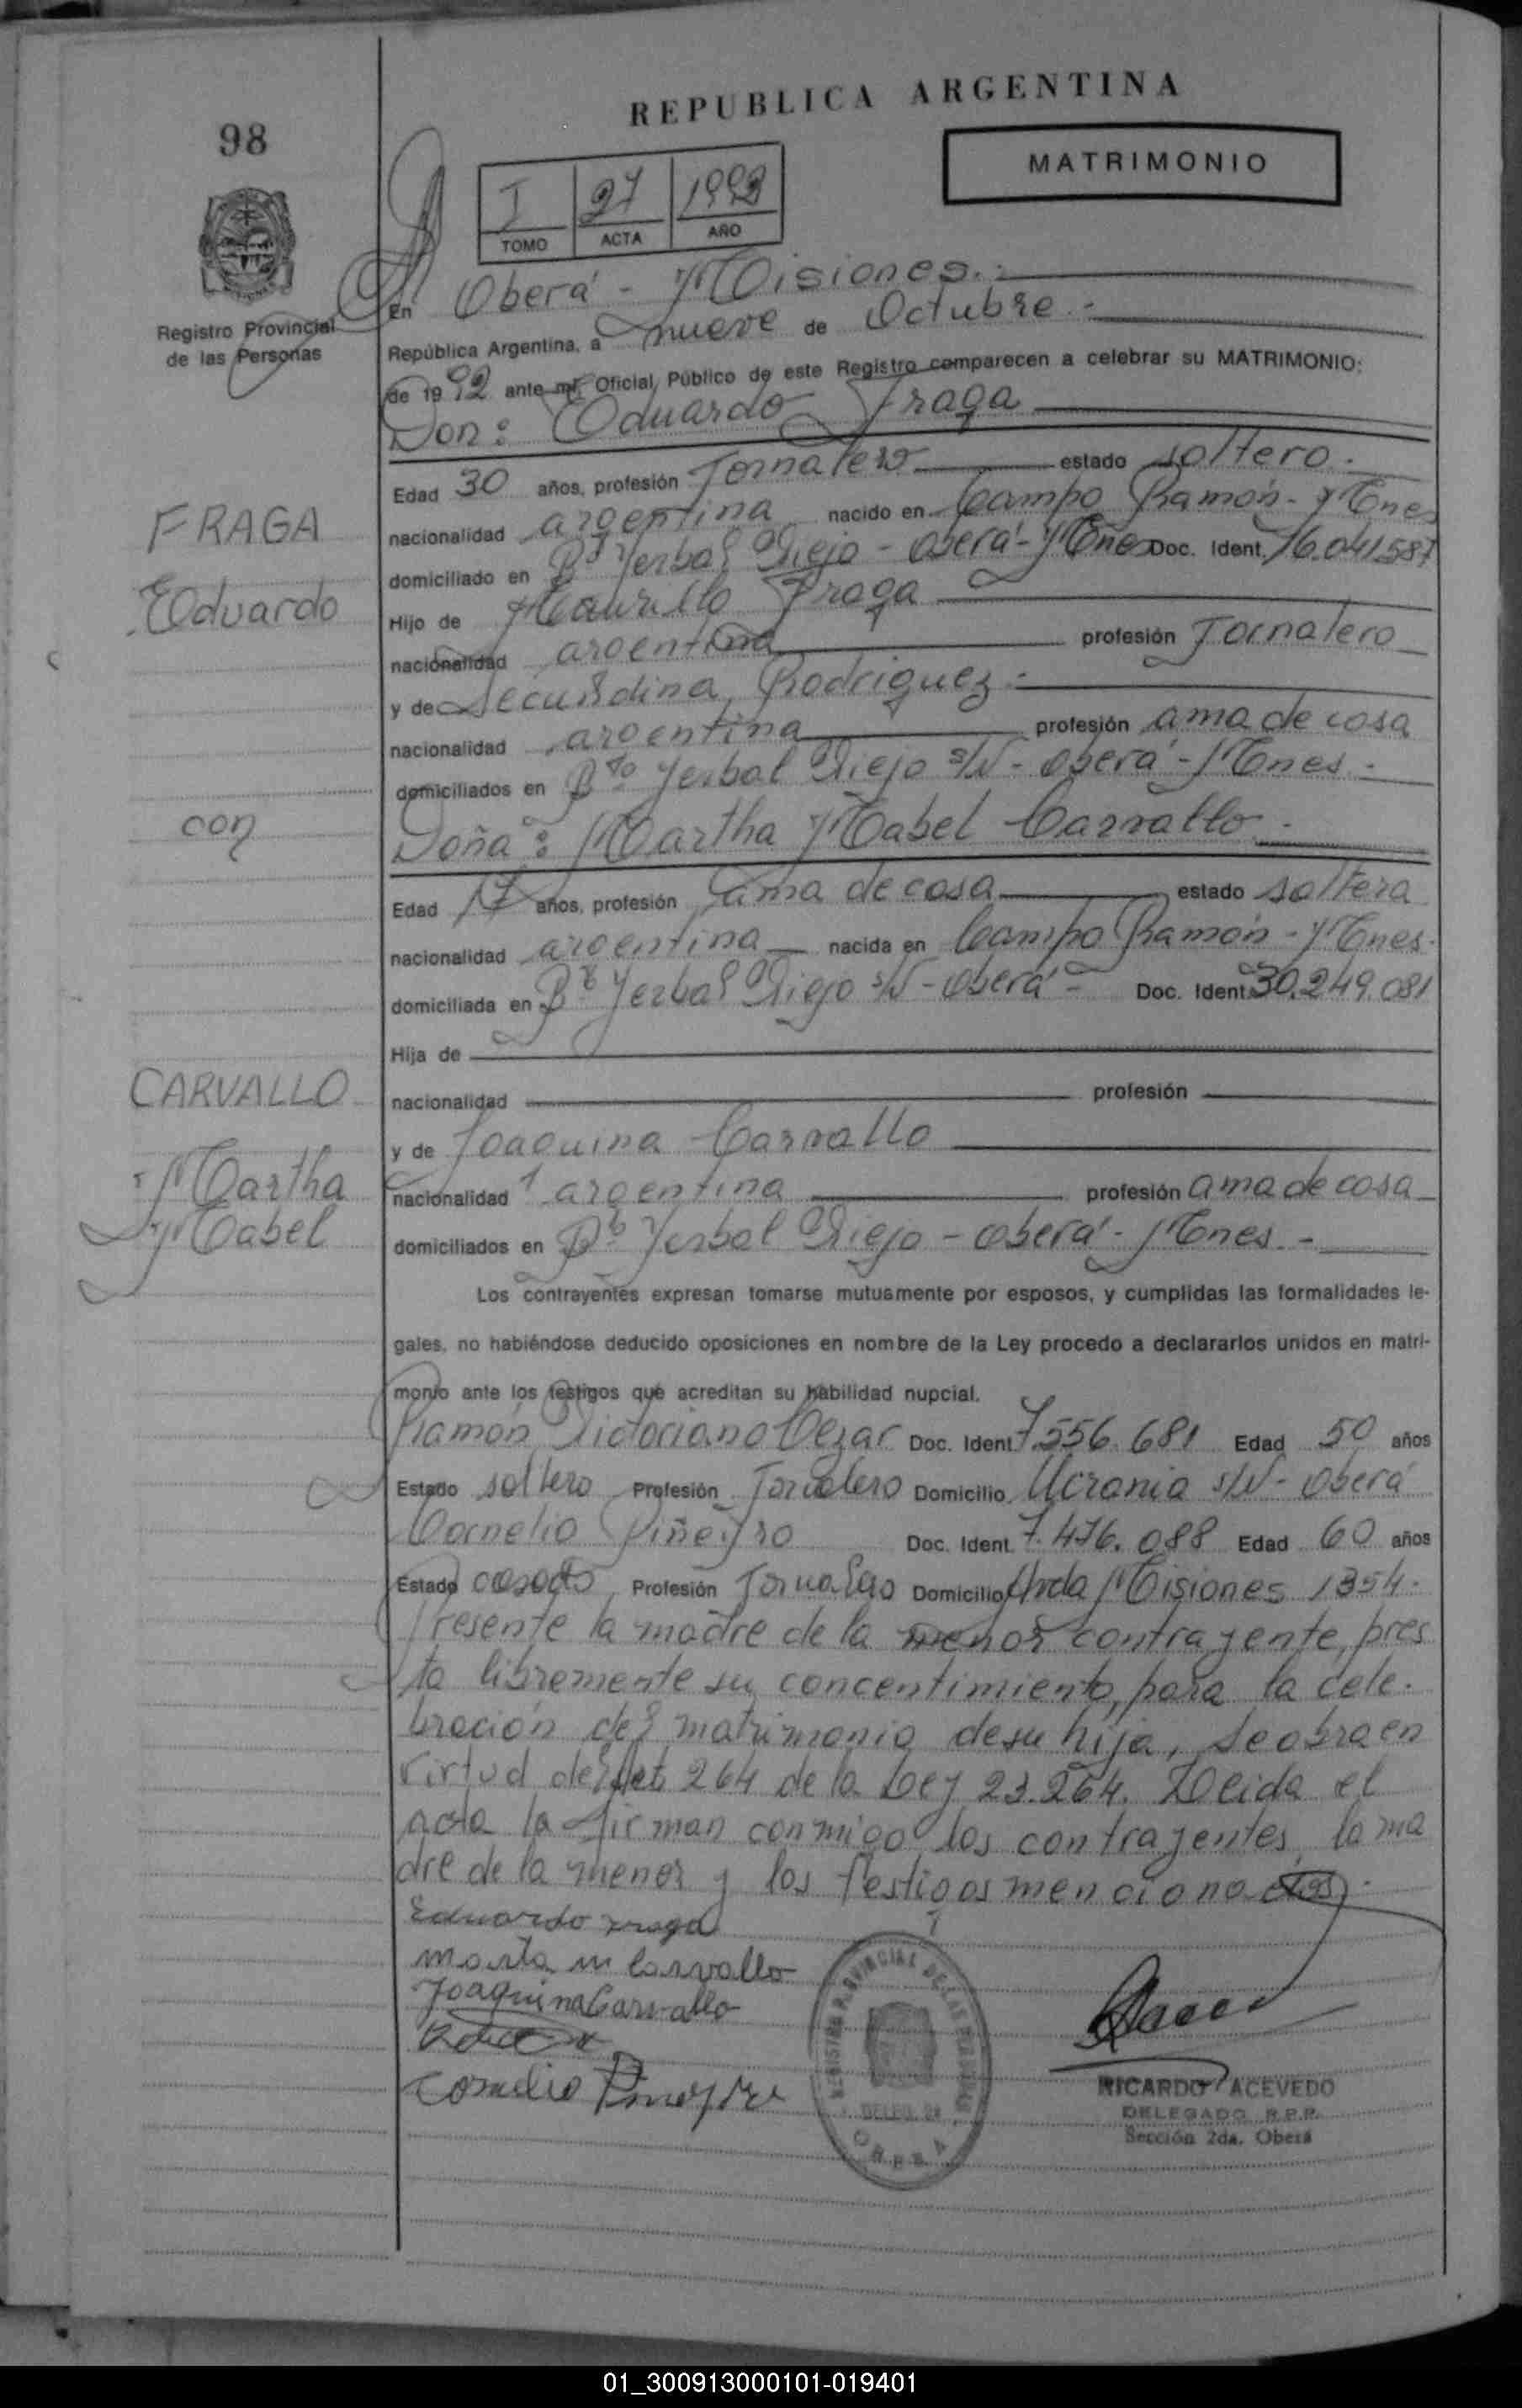 REPUBLICA ARGENTINA
98
MATRIMONIO
I 97 1992
TOMO ACTA AÑO
Registro Provincial
de las Personas
En Oberá - Misiones.-
República Argentina, a nueve de Octubre.-
de 1992 ante mí, Oficial Público de este Registro comparecen a celebrar su MATRIMONIO:
Don: Eduardo Fraga
Edad 30 años, profesión Jornalero estado soltero.
FRAGA
nacionalidad argentina nacido en Campo Ramón - Mnes
domiciliado en Bº Yerbal Viejo - Oberá - Mnes Doc. Ident. 16.041.587
Eduardo
Hijo de Fraga
nacionalidad argentina profesión Jornalero
y de Secundina Rodriguez.-
nacionalidad argentina profesión ama de casa
domiciliados en Bº Yerbal Viejo s/N - Oberá - Mnes.-
con
Doña: Martha Mabel Carvallo.-
Edad 17 años, profesión ama de casa estado soltera
nacionalidad argentina nacida en Campo Ramón - Mnes.
domiciliada en Bº Yerbal Viejo s/N - Oberá - Doc. Ident. 30.249.081
Hija de
CARVALLO
nacionalidad profesión
y de Joaquina Carvallo
Martha
nacionalidad argentina profesión ama de casa
Mabel
domiciliados en Bº Yerbal Viejo - Oberá - Mnes.-
Los contrayentes expresan tomarse mutuamente por esposos, y cumplidas las formalidades le-
gales, no habiéndose deducido oposiciones en nombre de la Ley procedo a declararlos unidos en matri-
monio ante los testigos que acreditan su habilidad nupcial.
Ramón Victoriano Cezar Doc. Ident 7.556.681 Edad 50 años
Estado soltero Profesión Jornalero Domicilio Ucrania s/N - Oberá
Cornelio Piñeyro Doc. Ident. 7.476.088 Edad 60 años
Estado casado Profesión Jornalero Domicilio Avda Misiones 1354.
Presente la madre de la menor contrayente, pres
ta libremente su concentimiento, para la cele-
bración del matrimonio de su hija, se obra en
virtud del Art. 264 de la Ley 23.264. Leida el
acta la firman conmigo los contrayentes, la ma
dre de la menor y los testigos mencionados.-
Eduardo Fraga
Marta m Carvallo
Joaquina Carvallo
Cornelio Pineyro
REGISTRO PROVINCIAL DE LAS PERSONAS
OBERA
RICARDO ACEVEDO
DELEGADO R.P.P.
Sección 2da. Oberá
01_300913000101-019401